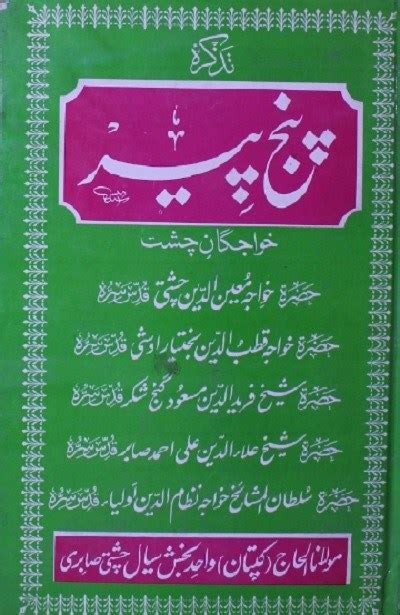 تذکرہ
پنج پیر
خواجگانِ چشت
حضرت خواجہ معین الدین چشتی قدس سرہ
حضرت خواجہ قطب الدین بختیار اوشی قدس سرہ
حضرت شیخ فرید الدین مسعود گنج شکر قدس سرہ
حضرت شیخ علاء الدین علی احمد صابر قدس سرہ
حضرت سلطان المشائخ خواجہ نظام الدین اولیاء قدس سرہ
مولانا الحاج (کپتان) واحد بخش سیال چشتی صابری